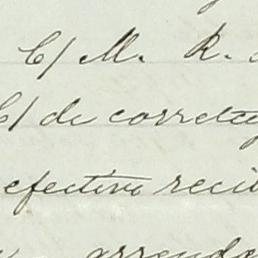 C/ M. R.
C/ de corretu
efectivo reci
arrende